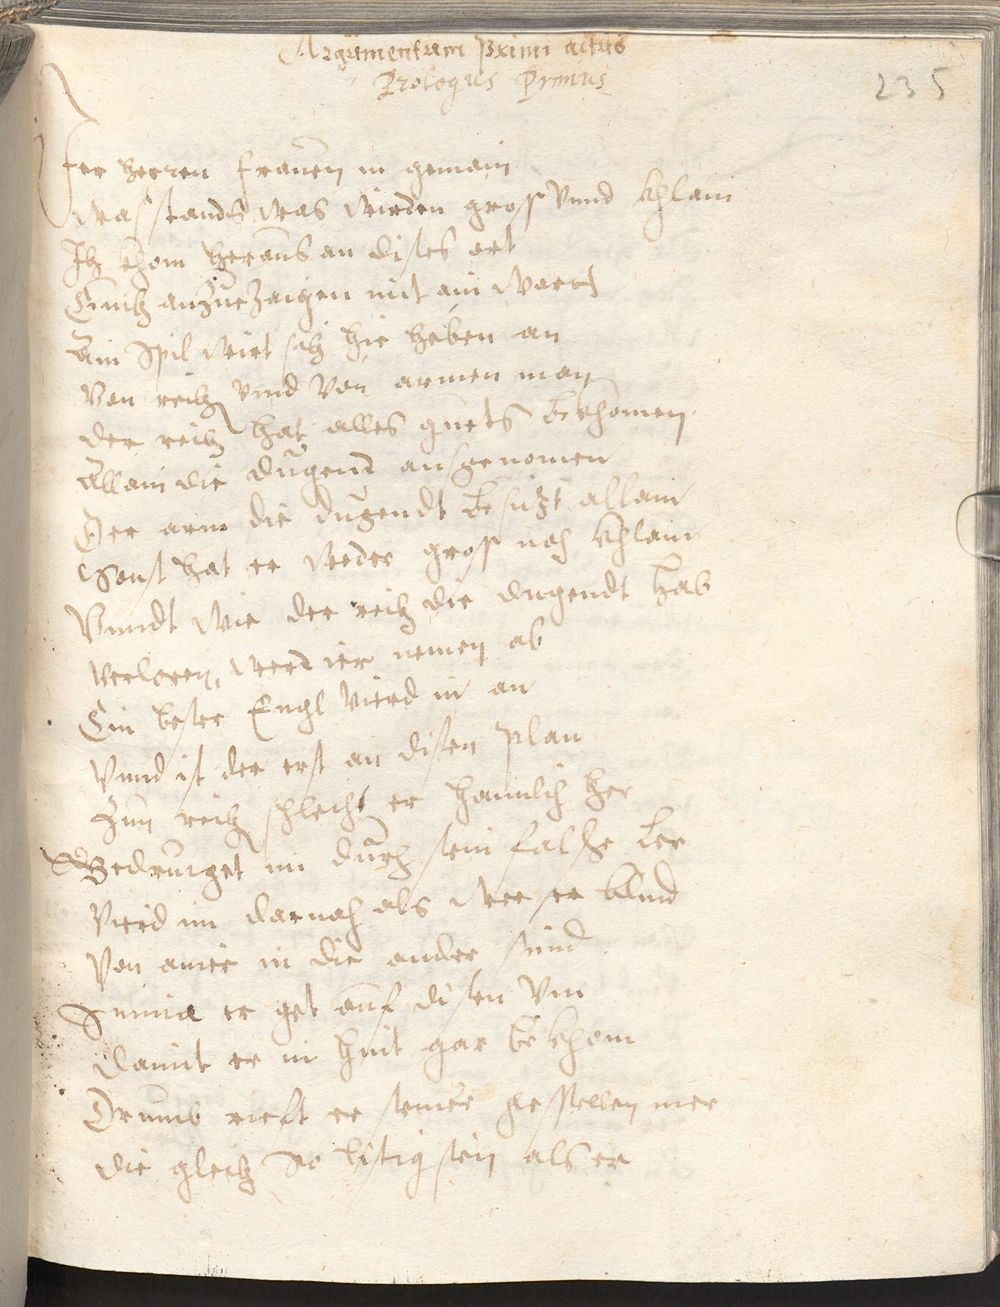 Argumentum Primi actus
Prologus Primus
235
Ier herren frauen in gemain
Was stands was wirden gross vnnd khlain
Ich khom heraus an dises ort
Euch anzuezaigen mit ain wort
Ain spil wirt sich hie heben an
Von reich vnnd von armen man
Der reich hat alles guets bekhomen
Allain die dugent ausgenomen
Der arm die dugendt besitzt allain
Sonst hat er weder gross noch khlain
Vnndt wie der reich die dugendt hab
verloren, werd ier nemen ab
Ein beser Engl vierd in an
Vnnd ist der erst an disen plan
Zum reich schlecht er haimlich her
Bedrueget im durch sein falsche Ler
Vierd im darnach als wer er blind
Von ainer in die ander sind
Suma er get auf disen vm
Damit er in hint gar bekhom
Drumb rieft er seiner gesellen mer
die gleich so listig sein als er